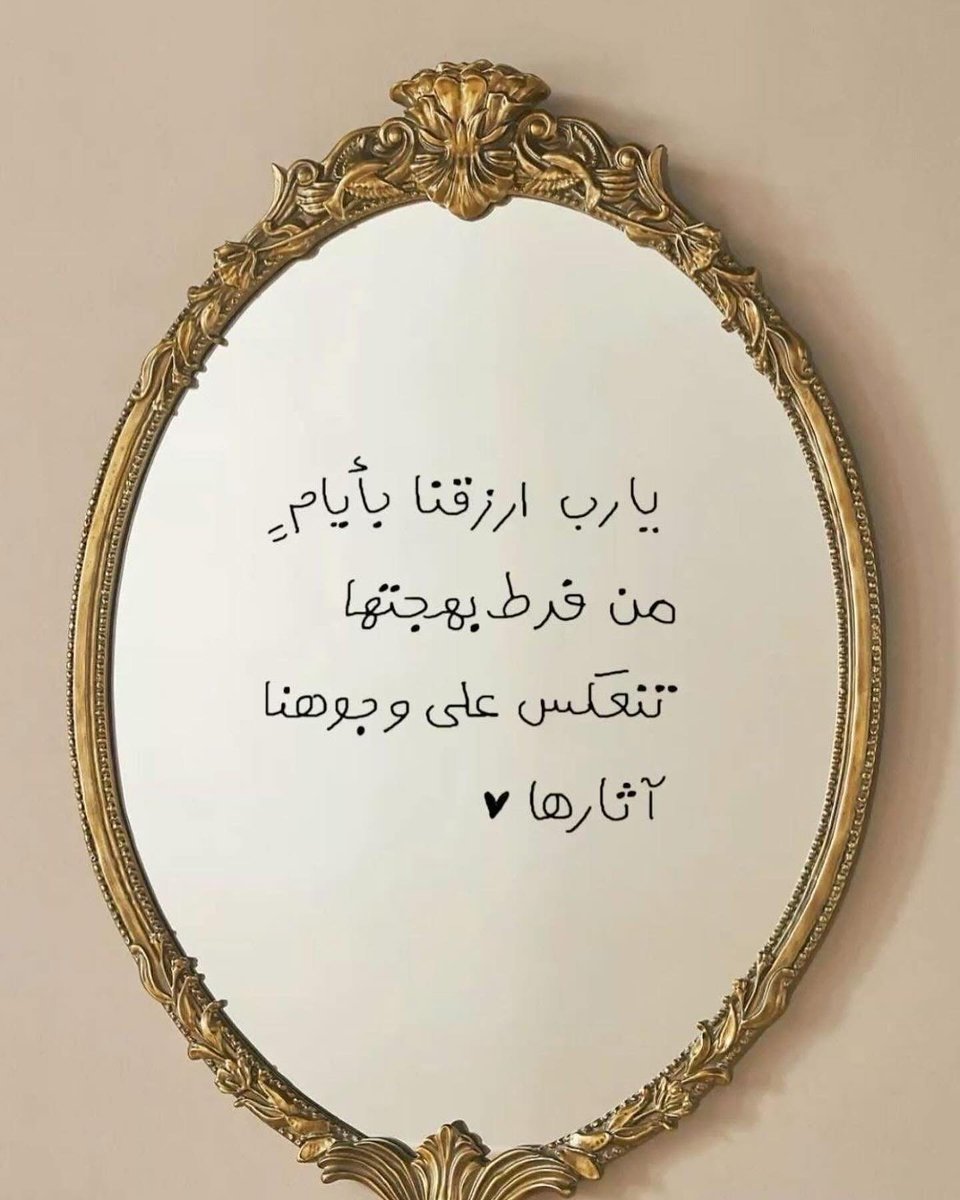 يارب ارزقنا بأيامٍ
من فرط بهجتها
تنعكس على وجوهنا
آثارها ♥